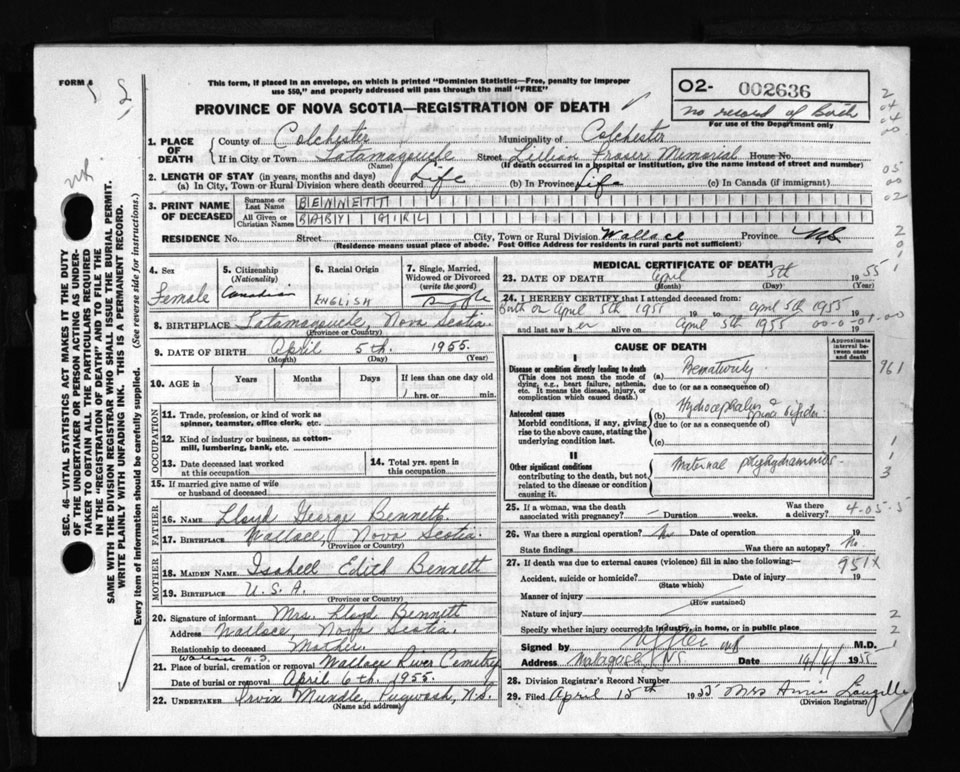 FORM 6
This form, if placed in an envelope, on which is printed "Dominion Statistics—Free, penalty for improper
use $50," and properly addressed will pass through the mail "FREE"
PROVINCE OF NOVA SCOTIA—REGISTRATION OF DEATH
02- 002636
no record of birth
For use of the Department only
1. PLACE OF DEATH
County of Colchester Municipality of Colchester
If in City or Town Tatamagouche Street Lillian Fraser Memorial House No.
(Name) (If death occurred in a hospital or institution, give the name instead of street and number)
2. LENGTH OF STAY (in years, months and days)
(a) In City, Town or Rural Division where death occurred Life (b) In Province Life (c) In Canada (if immigrant)
3. PRINT NAME OF DECEASED
Surname or Last Name BENNETT
All Given or Christian Names BABY GIRL
RESIDENCE No. Street City, Town or Rural Division Wallace Province N.S.
(Residence means usual place of abode. Post Office Address for residents in rural parts not sufficient)
SEC. 46—VITAL STATISTICS ACT MAKES IT THE DUTY
OF THE UNDERTAKER OR PERSON ACTING AS UNDER-
TAKER TO OBTAIN ALL THE PARTICULARS REQUIRED
IN THE "REGISTRATION OF DEATH" AND TO FILE THE
SAME WITH THE DIVISION REGISTRAR WHO SHALL ISSUE THE BURIAL PERMIT.
WRITE PLAINLY WITH UNFADING INK. THIS IS A PERMANENT RECORD.
Every item of information should be carefully supplied. (See reverse side for instructions.)
4. Sex
Female
5. Citizenship
(Nationality)
Canadian
6. Racial Origin
ENGLISH
7. Single, Married,
Widowed or Divorced
(write the word)
Single
8. BIRTHPLACE Tatamagouche, Nova Scotia.
(Province or Country)
9. DATE OF BIRTH April 5th. 1955.
(Month) (Day) (Year)
10. AGE in
Years Months Days If less than one day old
hrs. or min.
OCCUPATION
11. Trade, profession, or kind of work as
spinner, teamster, office clerk, etc.
12. Kind of industry or business, as cotton-
mill, lumbering, bank, etc.
13. Date deceased last worked
at this occupation
14. Total yrs. spent in
this occupation
15. If married give name of wife
or husband of deceased
FATHER
16. NAME Lloyd George Bennett.
17. BIRTHPLACE Wallace, Nova Scotia.
(Province or Country)
MOTHER
18. MAIDEN NAME Isabell Edith Bennett
19. BIRTHPLACE U.S.A.
(Province or Country)
20. Signature of informant Mrs. Lloyd Bennett
Address Wallace, Nova Scotia.
Relationship to deceased Mother.
Wallace N.S.
21. Place of burial, cremation or removal Wallace River Cemetry
Date of burial or removal April 6th. 1955.
22. UNDERTAKER Irvin Mundle, Pugwash, N.S.
(Name and address)
MEDICAL CERTIFICATE OF DEATH
23. DATE OF DEATH April 5th 1955
(Month) (Day)
24. I HEREBY CERTIFY that I attended deceased from:
Birth on April 5th 1955 19 to April 5th 1955
and last saw her alive on April 5th 1955 00-0-01-00
CAUSE OF DEATH
Approximate
interval be-
tween onset
and death
I
Disease or condition directly leading to death
(This does not mean the mode of
dying, e.g., heart failure, asthenia,
etc. It means the disease, injury, or
complication which caused death.)
(a) Prematurity 961
due to (or as a consequence of)
Antecedent causes
Morbid conditions, if any, giving
rise to the above cause, stating the
underlying condition last.
(b) Hydrocephalus & spina bifida
due to (or as a consequence of)
(c)
II
Other significant conditions
contributing to the death, but not
related to the disease or condition
causing it.
Maternal polyhydramnios
25. If a woman, was the death
associated with pregnancy? Duration weeks. Was there
a delivery? 4-05-5
26. Was there a surgical operation? No Date of operation 19
State findings Was there an autopsy? No
27. If death was due to external causes (violence) fill in also the following:— 951X
Accident, suicide or homicide? Date of injury 19
(State which)
Manner of injury
(How sustained)
Nature of injury
Specify whether injury occurred in industry, in home, or in public place
Signed by M.D.
Address Malagash, NS Date 14/4/ 1955
28. Division Registrar's Record Number
29. Filed April 15th 1955 Mrs Annie Langille
(Division Registrar)